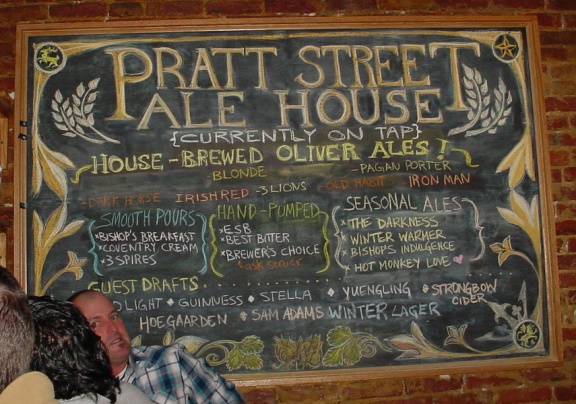 PRATT STREET
ALE HOUSE
{CURRENTLY ON TAP}
HOUSE-BREWED OLIVER ALES!
BLONDE -PAGAN PORTER
-DARK HORSE IRISH RED -3 LIONS -OLD HABIT -IRON MAN
SMOOTH POURS
*BISHOP'S BREAKFAST
*COVENTRY CREAM
*3 SPIRES
HAND-PUMPED
*ESB
*BEST BITTER
*BREWER'S CHOICE
SEASONAL ALES
*THE DARKNESS
*WINTER WARMER
*BISHOP'S INDULGENCE
*HOT MONKEY LOVE
GUEST DRAFTS
LIGHT ♦ GUINNESS ♦ STELLA ♦ YUENGLING ♦ STRONGBOW CIDER
HOEGAARDEN ♦ SAM ADAMS WINTER LAGER